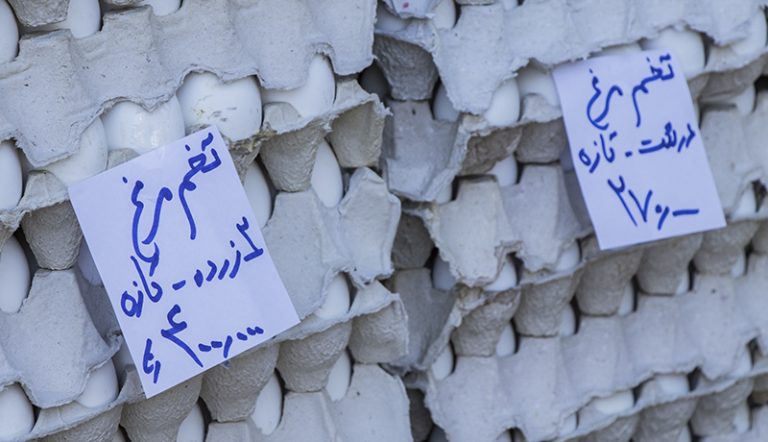 تخم مرغ
۲ زرده - تازه
۴۰۰,۰۰۰
تخم مرغ
درشت - تازه